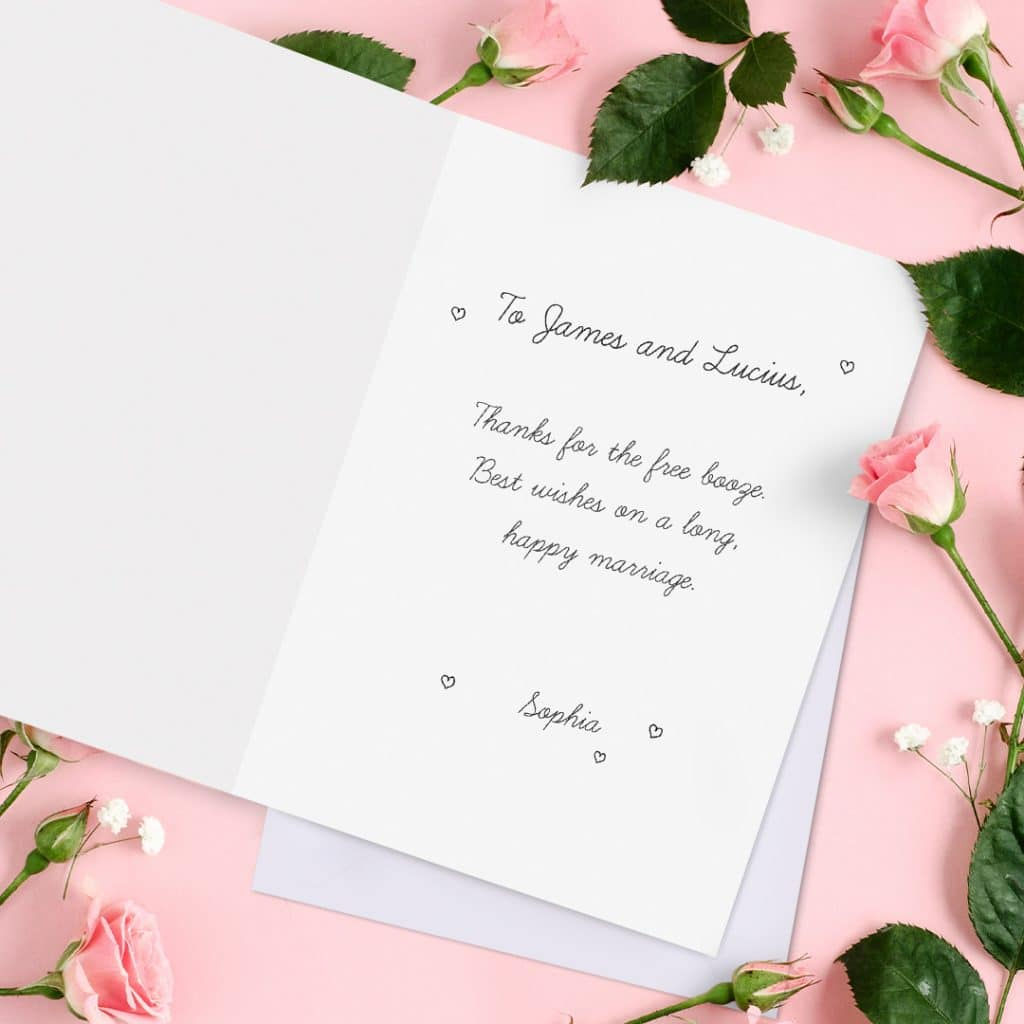 To James and Lucius,
Thanks for the free booze.
Best wishes on a long,
happy marriage.
Sophia